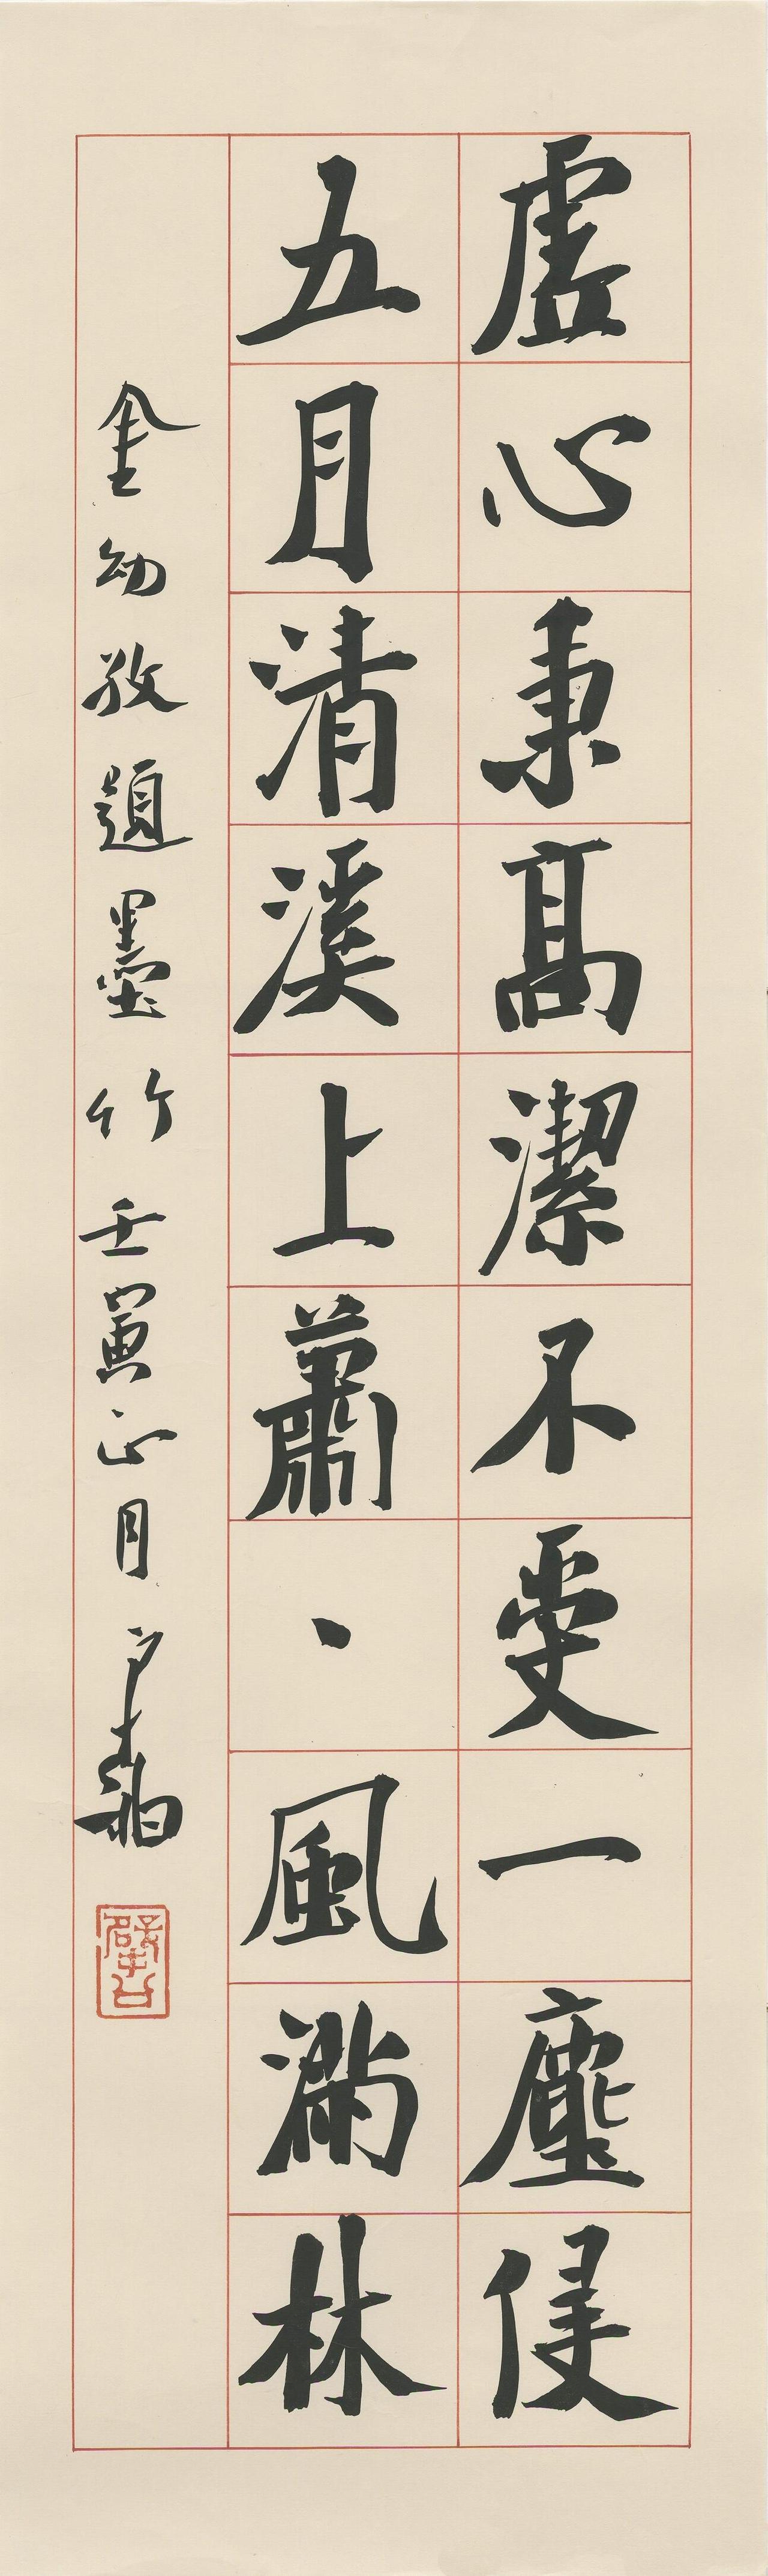 虛心秉高潔不受一塵侵
五月清溪上蕭丶風滿林
金幼孜題墨竹壬寅正月